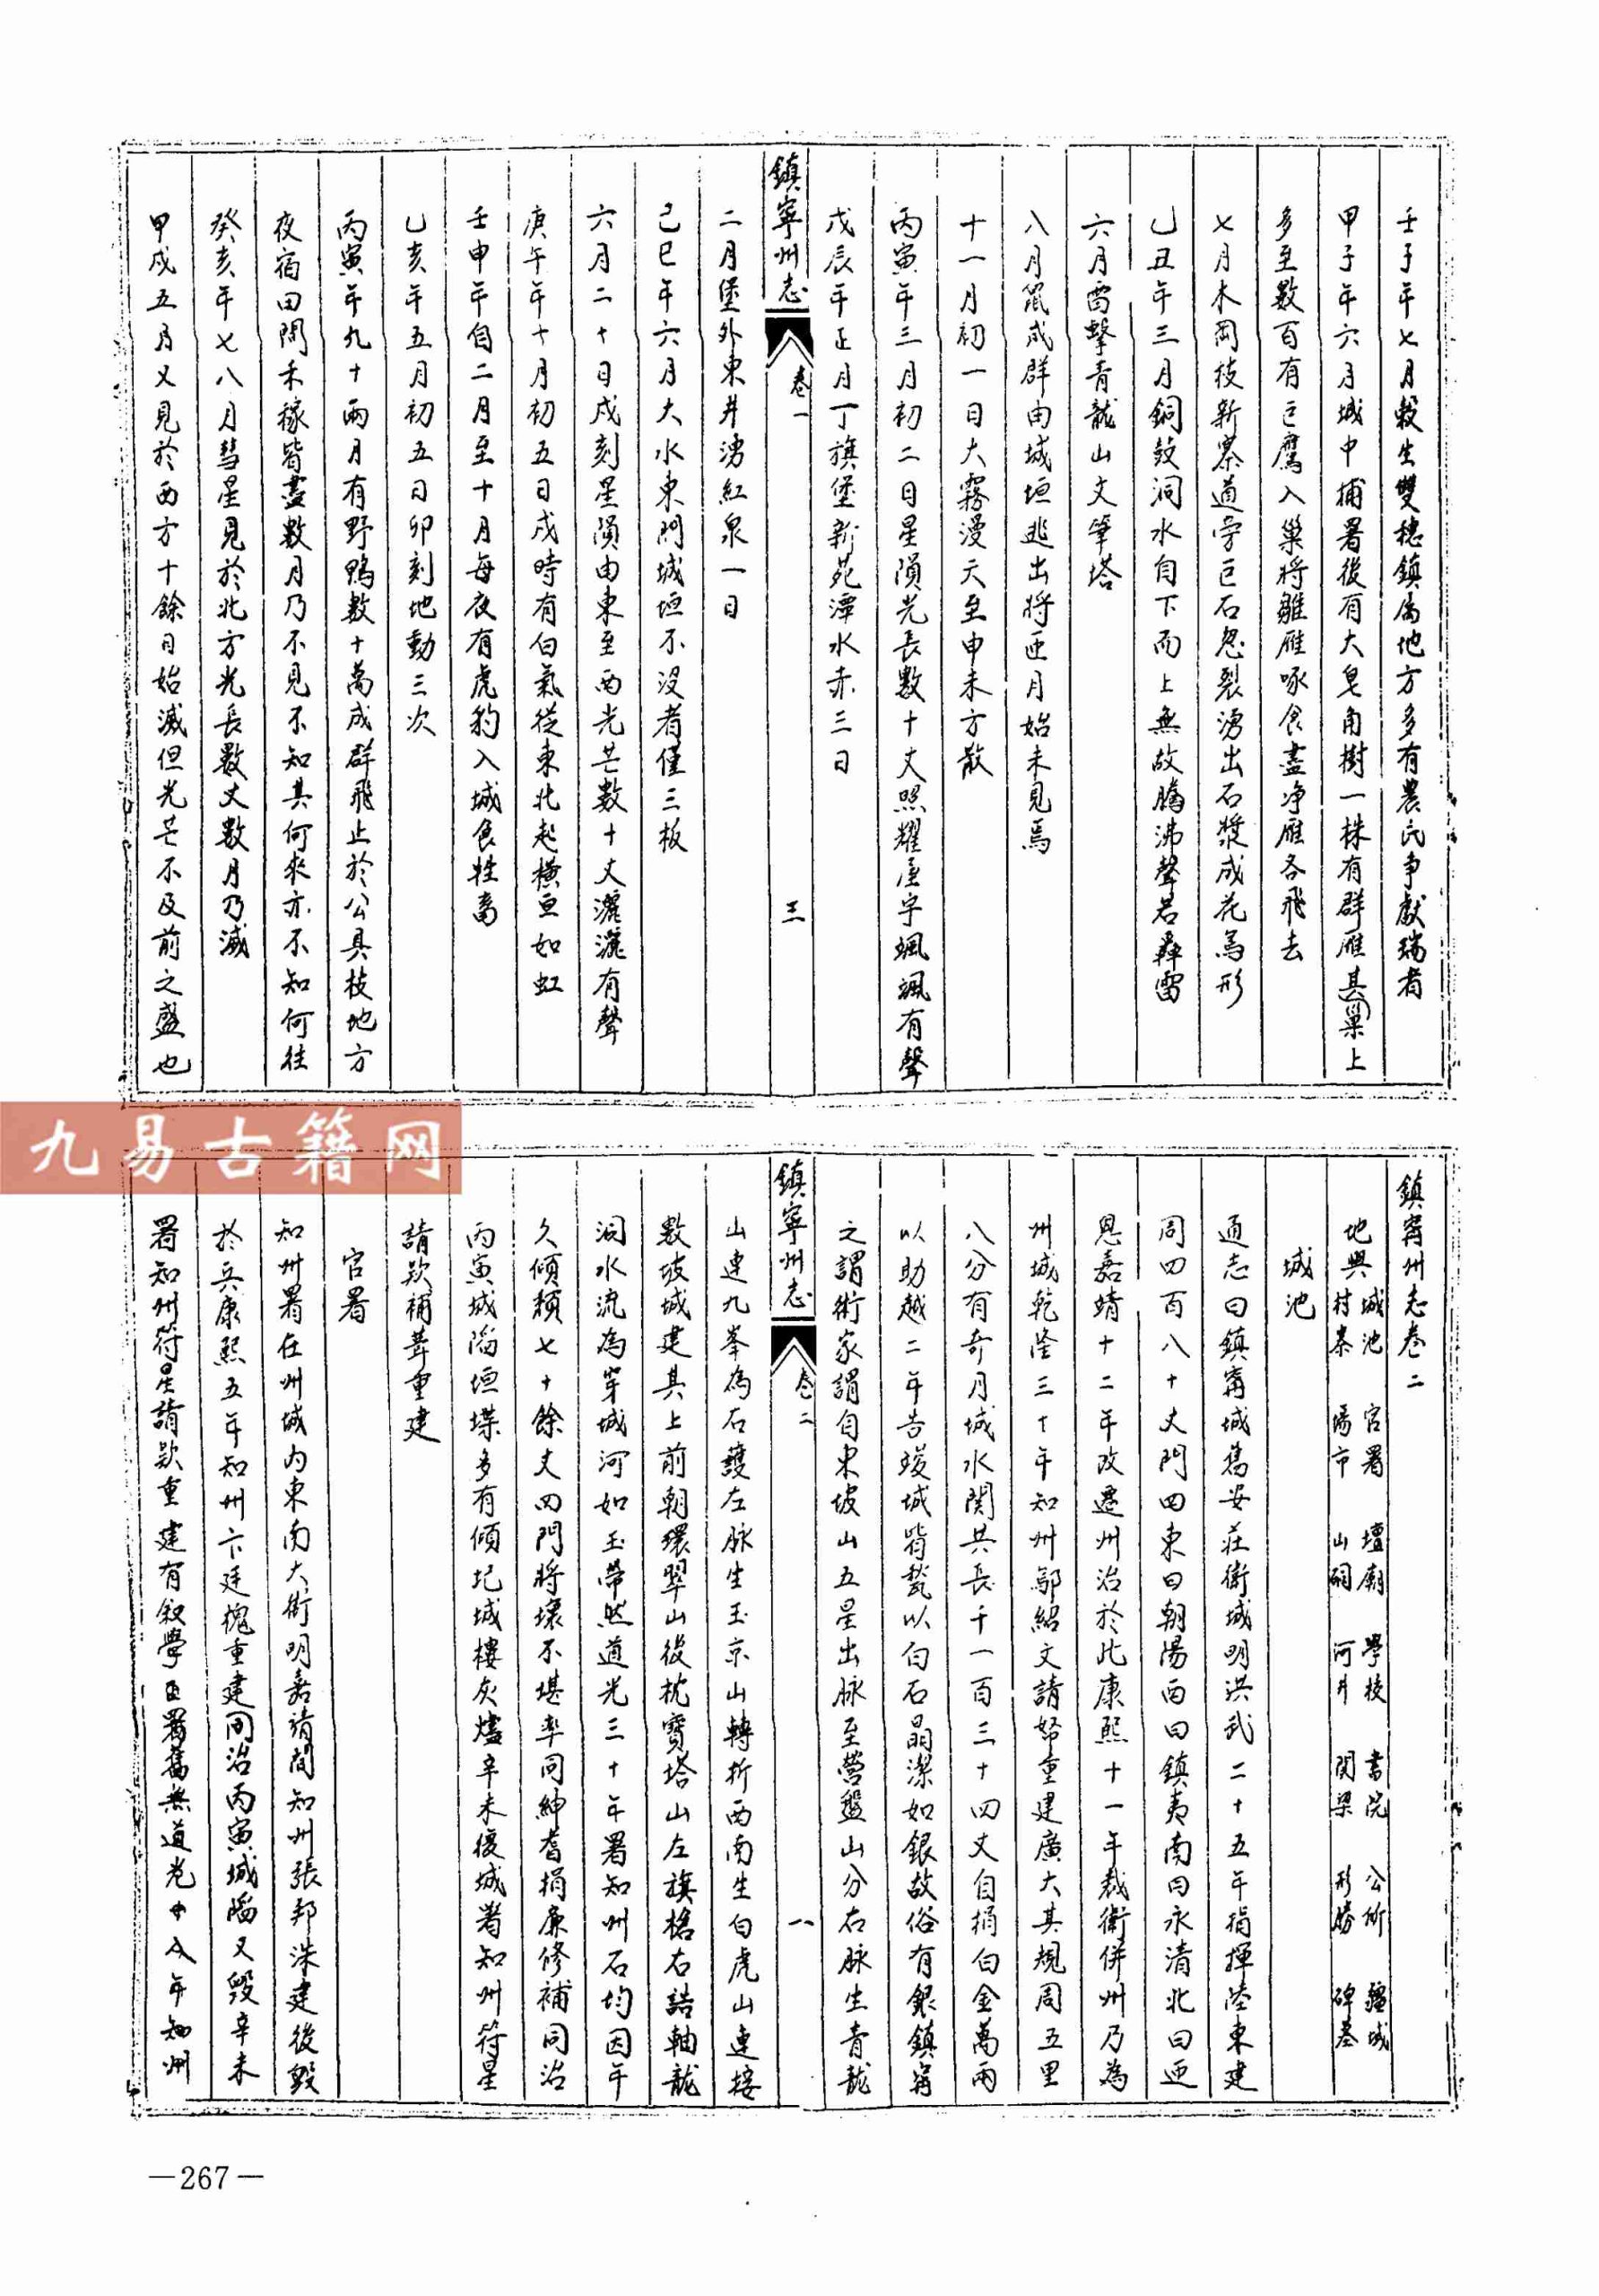 壬子年七月穀生雙穗鎮屬地方多有農民爭獻瑞者
甲子年六月城中捕署後有大皂角樹一株有群雁其巢上
多至數百有巨鷹入巢將雛雁啄食盡净雁各飛去
七月木岡枝新寨道旁巨石忽裂湧出石漿成花鳥形
乙丑年三月銅鼓洞水自下而上無故騰沸聲若轟雷
六月雷擊青龍山文筆塔
八月鼠成群由城垣逃出將匝月始未見焉
十一月初一日大霧漫天至申未方散
丙寅年三月初二日星隕光長數十丈照耀屋宇颯颯有聲
戊辰年正月丁旗堡新苑潭水赤三日
鎮寧州志 卷一 三
二月堡外東井湧紅泉一日
己巳年六月大水東門城垣不没者僅三板
六月二十日戍刻星隕由東至西光芒數十丈灑灑有聲
庚午年十月初五日戍時有白氣從東北起橫亘如虹
壬申年自二月至十月每夜有虎豹入城食牲畜
乙亥年五月初五日卯刻地動三次
丙寅年九十兩月有野鴨數十萬成群飛止於公具枝地方
夜宿田間禾稼皆盡數月乃不見不知其何來亦不知何往
癸亥年七八月彗星見於北方光長數丈數月乃滅
甲戍五月又見於西方十餘日始滅但光芒不及前之盛也
鎮甯州志卷二
地輿 城池 官署 壇廟 學校 書院 公所 疆域
村寨 場市 山洞 河井 関梁 形勝 碑墓
城池
通志曰鎮甯城舊安莊衛城明洪武二十五年指揮陸東建
周四百八十丈門四東曰朝陽西曰鎮夷南曰永清北曰迎
恩嘉靖十二年改遷州治於此康熙十一年裁衛併州乃為
州城乾隆三十年知州鄔紹文請帑重建廣大其規周五里
八分有奇月城水関共長千一百三十四丈自捐白金萬兩
以助越二年告竣城皆甃以白石晶潔如銀故俗有銀鎮甯
之謂術家謂自東坡山五星出脉至營盤山分右脉生青龍
鎮寧州志 卷二 一八
山連九峯為右護左脉生玉京山轉折西南生白虎山連接
數坡城建其上前朝環翠山後枕寶塔山左旗槍右誥軸龍
洞水流為穿城河如玉帶然道光三十年署知州石均因年
久傾頹七十餘丈四門將壞不堪率同紳耆捐廉修補同治
丙寅城陷垣堞多有傾圮城樓灰燼辛未復城署知州符星
請欵補葺重建
官署
知州署在州城内東南大街明嘉靖間知州張邦洙建後毀
於兵康熙五年知州卞廷槐重建同治丙寅城陷又毀辛未
署知州符星請欵重建有叙學正署舊無道光十八年知州
—267—
九易古籍网